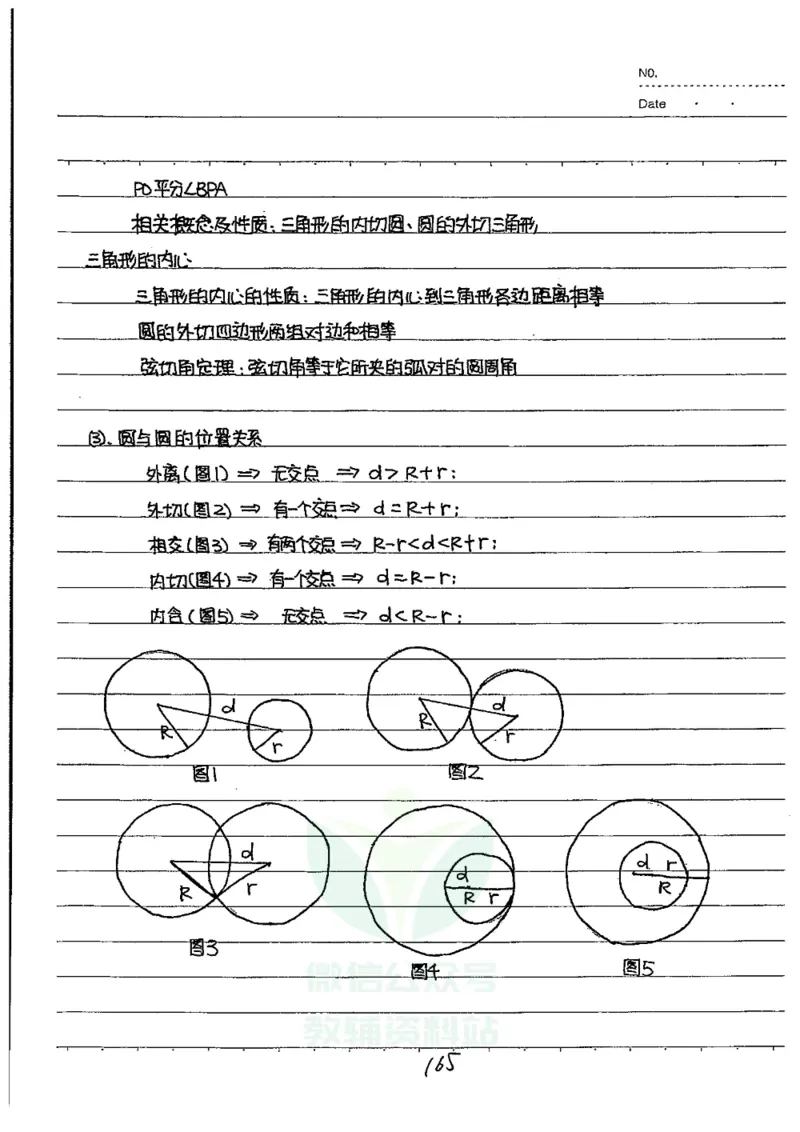 NO.
Date
PO平分∠BPA
相关概念及性质：三角形的内切圆、圆的外切三角形
三角形的内心
三角形的内心的性质：三角形的内心到三角形各边距离相等
圆的外切四边形两组对边和相等
弦切角定理：弦切角等于它所夹的弧对的圆周角
(3)、圆与圆的位置关系
外离(图1) ⇒ 无交点 ⇒ d>R+r;
外切(图2) ⇒ 有一个交点 ⇒ d=R+r;
相交(图3) ⇒ 有两个交点 ⇒ R-r<d<R+r;
内切(图4) ⇒ 有一个交点 ⇒ d=R-r;
内含(图5) ⇒ 无交点 ⇒ d<R-r;
d
R
r
图1
d
R
r
图2
d
R
r
图3
d
R r
图4
d r
R
图5
微信公众号
教辅资料站
165